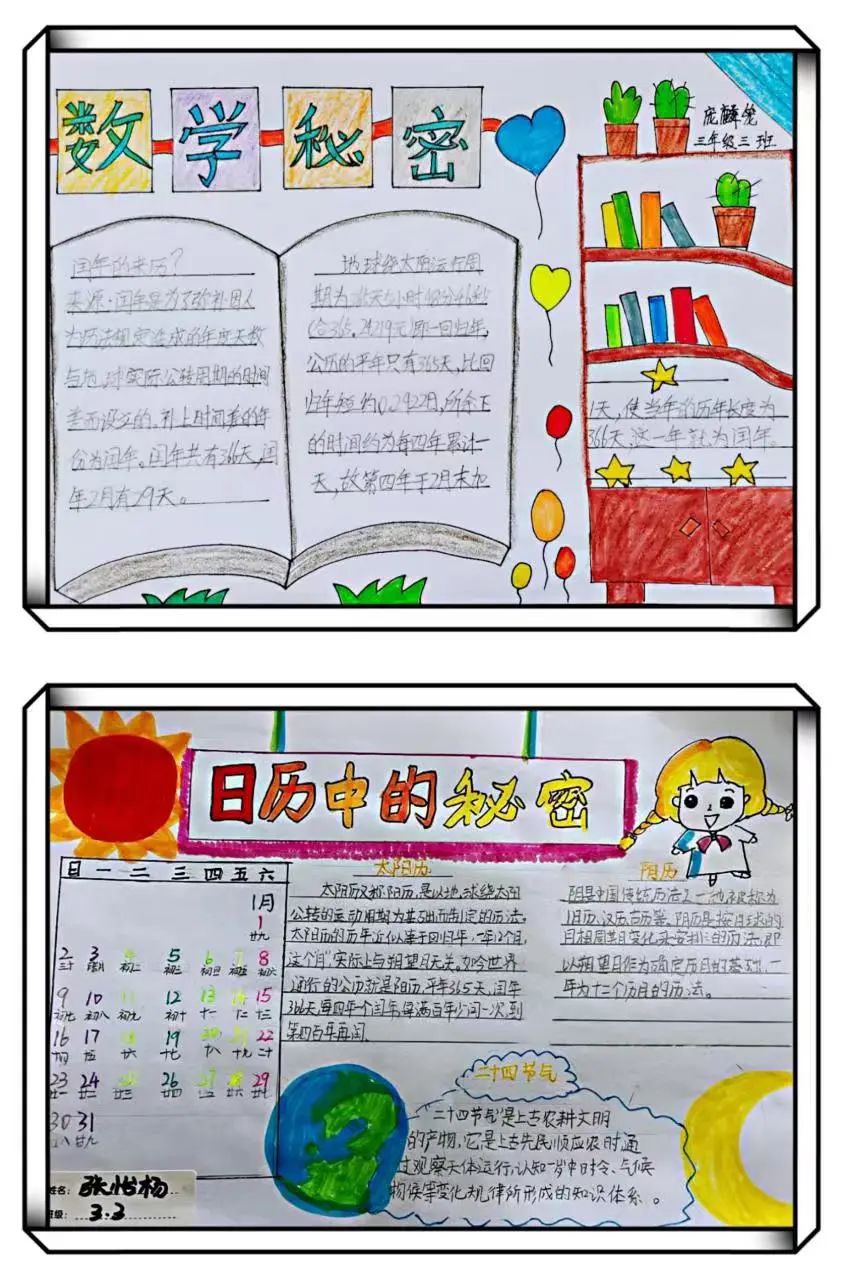 数学秘密
三年级三班
闰年的来历?
来源:闰年是为了弥补因人
为历法规定造成的年度天数
与地球实际公转周期的时间
差而设立的。补上时间差的年
份为闰年。闰年共有366天,闰
年2月有29天。
地球绕太阳运行周
期为365天5小时48分46秒
(合365.24219天)即一回归年,
公历的平年只有365天,比回
归年短约0.2422日,所余下
的时间约为每四年累计一
天,故第四年于2月末加
1天,使当年的历年长度为
366天,这一年就为闰年。
日历中的秘密
日 一 二 三 四 五 六
1月
1
廿九
2 3 4 5 6 7 8
三十 初二 初三 初四 初五 初六
9 10 11 12 13 14 15
初七 初八 初九 初十 十一 十二 十三
16 17 18 19 20 21 22
十四 十五 十六 十七 十八 十九 二十
23 24 25 26 27 28 29
廿一 廿二 廿三 廿四 廿五 廿六 廿七
30 31
廿八 廿九
姓名: 张怡杨
班级: 3.3
太阳历
太阳历又称阳历,是以地球绕太阳
公转的运动周期为基础而制定的历法。
太阳历的历年近似等于回归年,一年12个月,
这个"月"实际上与朔望月无关。如今世界
通行的公历就是阳历,平年365天,闰年
366天,每四年一个闰年,每满百年少闰一次,到
第四百年再闰。
阴历
阴是中国传统历法之一,也被称为
月历、汉历、古历等,阴历是按月球的
月相周期变化来安排的历法,即
以朔望月作为确定历月的基础,一
年为十二个历月的历法。
二十四节气
"二十四节气"是上古农耕文明
的产物,它是上古先民顺应农时,通
过观察天体运行,认知一岁中时令、气候、
物候等变化规律所形成的知识体系。